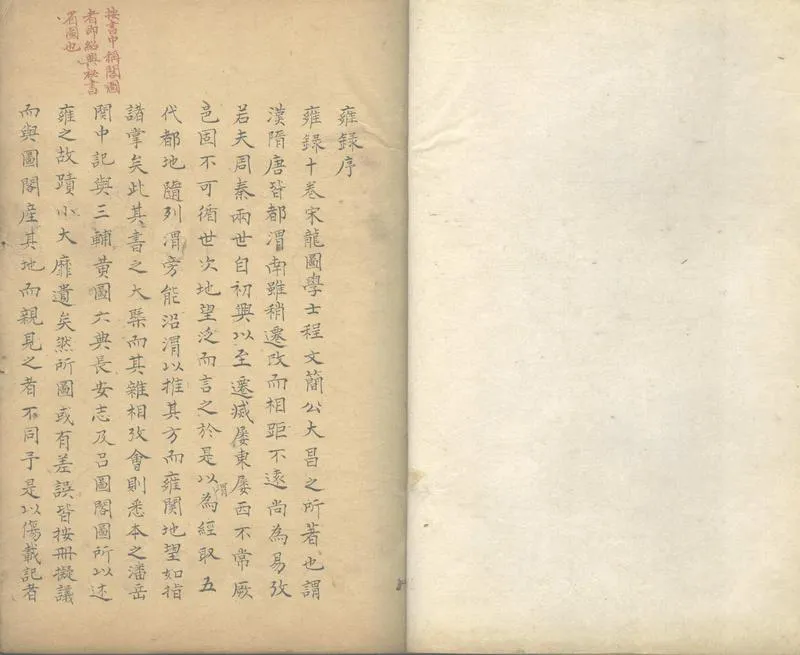 雍錄序
雍錄十卷宋龍圖學士程文簡公大昌之所著也謂
漢隋唐皆都渭南雖稍遷改而相距不遠尚為易攷
若夫周秦兩世自初興以至遷滅屢東屢西不常厥
邑固不可循世次地望泛而言之於是以渭為經取五
代都地隨列渭旁能沿渭以推其方而雍関地望如指
諸掌矣此其書之大槩而其雜相攷會則悉本之潘岳
関中記與三輔黄圖六典長安志及吕圖閣圖所以述
雍之故蹟小大靡遺矣然所圖或有差誤皆按冊擬議
而與圖閣産其地而親見之者不同予是以傷載記者
按書中稱閣圖
者即紹興秘書
省圖也